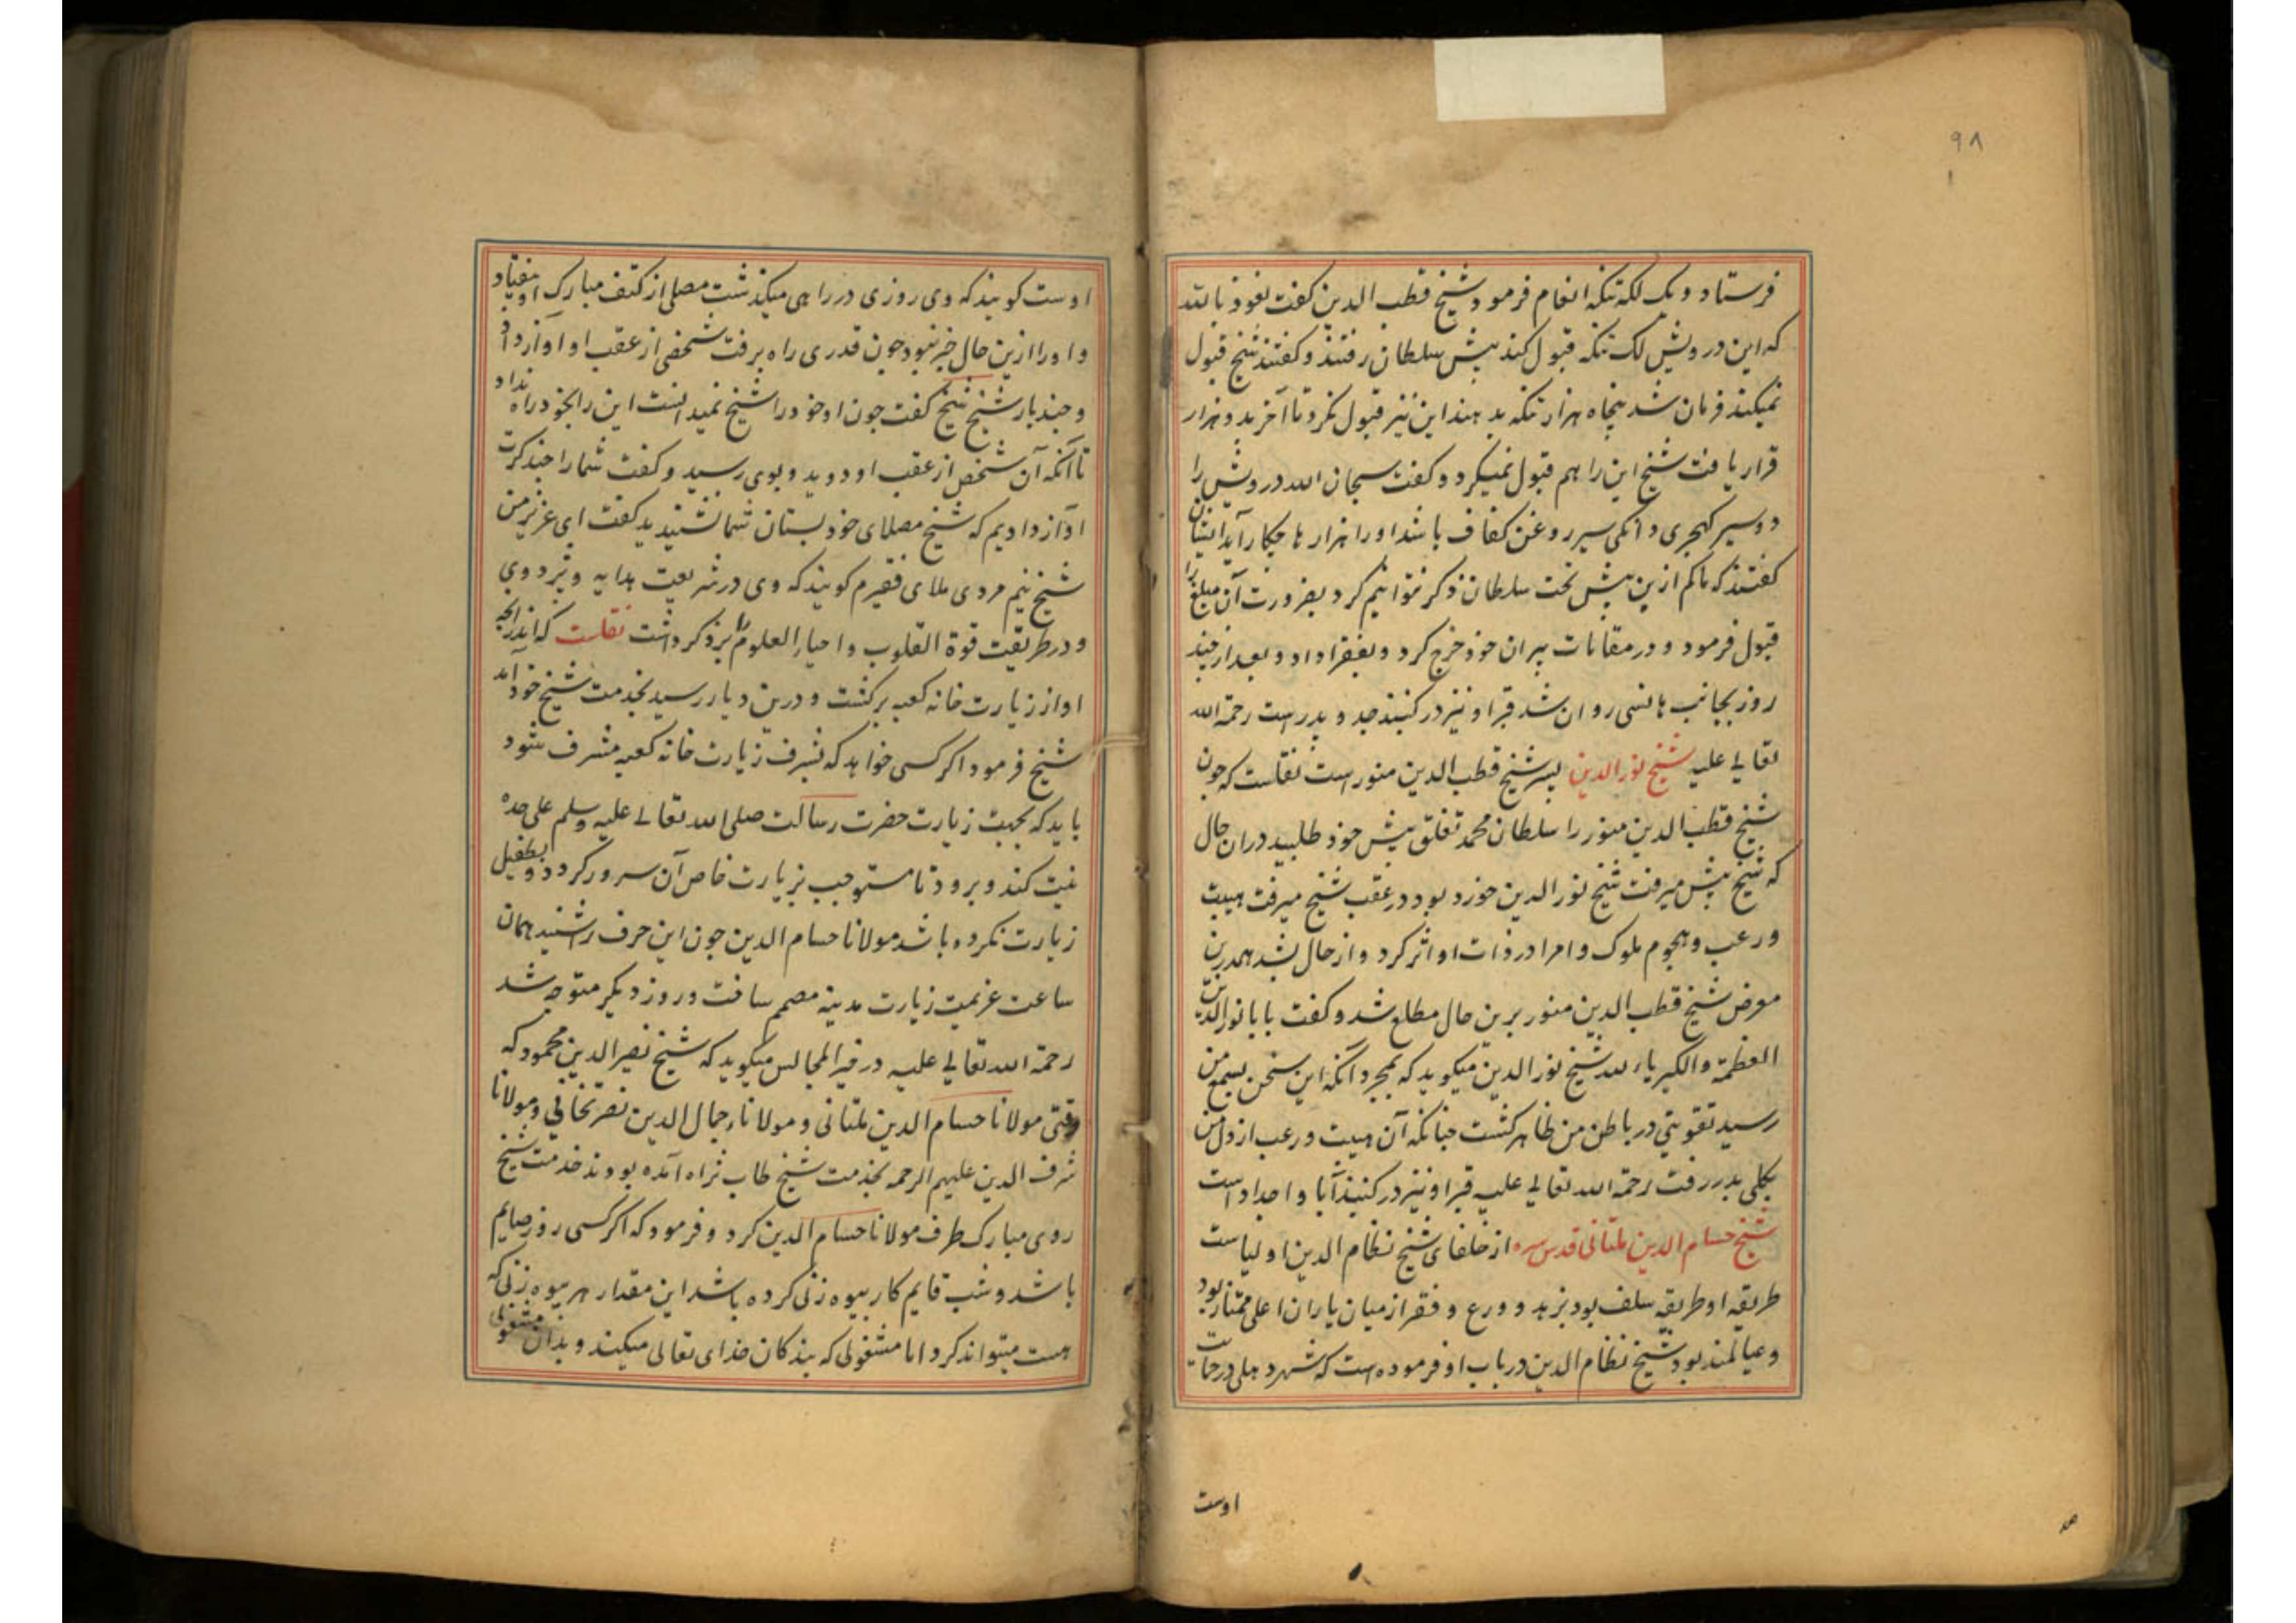 ۹۸
فرستاد و یک لکه تنکه انعام فرمود شیخ قطب الدین کفت نعوذ بالله
که این درویش لک تنکه قبول کند پیش سلطان رفتند و کفتند شیخ قبول
نمیکند فرمان شد پنجاه هزار تنکه بدهند این نیز قبول نکرد تا آخر بدو هزار
قرار یافت شیخ این را هم قبول نمیکرد و کفت سبحان الله درویش را
دو سیر کهچری و دانکی سیر روغن کفاف باشد او را هزارها چکار آید ایشان
کفتند که ما کم ازین پیش تخت سلطان ذکر نتوانیم کرد بضرورت آن مبلغ را
قبول فرمود و در مقامات پیران خود خرج کرد و بفقرا داد و بعد از چند
روز بجانب هانسی روان شد قبر او نیز در کنبند جد و پدرست رحمة الله
تعالی علیه شیخ نور الدین پسر شیخ قطب الدین منور است نقلست که چون
شیخ قطب الدین منور را سلطان محمد تغلق پیش خود طلبید دران حال
که شیخ پیش میرفت شیخ نور الدین خورد بود در عقب شیخ میرفت هیبت
و رعب و هجوم ملوک و امرا در ذات او اثر کرد و از حال بشد همدرین
معرض شیخ قطب الدین منور برین حال مطلع شد و کفت بابا نور الدین
العظمة والکبریاء لله شیخ نور الدین میکوید که بمجرد آنکه این سخن بسمع من
رسید تقویتی در باطن من ظاهر کشت چنانکه آن هیبت و رعب از دل من
بکلی بدر رفت رحمة الله تعالی علیه قبر او نیز در کنبند آبا و اجداد است
شیخ حسام الدین ملتانی قدس سره از خلفای شیخ نظام الدین اولیاست
طریقه او طریقه سلف بود بزهد و ورع و فقر از میان یاران اعلی ممتاز بود
و عیالمند بود شیخ نظام الدین در باب او فرموده است که شهر دهلی در حمایت
اوست
اوست کویند که وی روزی در راهی میکذشت مصلی از کتف مبارک او بیفتاد
و او را ازین حال خبر نبود چون قدری راه برفت شخصی از عقب او آواز داد
و چند بار شیخ شیخ کفت چون او خود را شیخ نمیدانست این را بخود راه نداد
تا آنکه آن شخص از عقب او دوید و بوی رسید و کفت شما را چند کرت
آواز دادیم که شیخ مصلای خود بستان شما نشنیدید کفت ای عزیز من
شیخ نیم مردی ملای فقیرم کویند که وی در شریعت هدایه و بزدوی
و در طریقت قوة القلوب و احیاء العلوم را بر ذکر داشت نقلست که
او از زیارت خانه کعبه برکشت و درین دیار رسید بخدمت شیخ خود آمد
شیخ فرمود اکر کسی خواهد که بشرف زیارت خانه کعبه مشرف شود
باید که بجهت زیارت حضرت رسالت صلی الله تعالی علیه وسلم علی حده
نیت کند و برود تا مستوجب زیارت خاص آن سرور کردد و بطفیل
زیارت نکرده باشد مولانا حسام الدین چون این حرف را شنید همان
ساعت عزیمت زیارت مدینه مصمم ساخت و روز دیکر متوجه شد
رحمة الله تعالی علیه در خیر المجالس میکوید که شیخ نصیر الدین محمود که
وقتی مولانا حسام الدین ملتانی و مولانا جمال الدین نصرتخانی و مولانا
شرف الدین علیهم الرحمه بخدمت شیخ طاب ثراه آمده بودند خدمت شیخ
روی مبارک طرف مولانا حسام الدین کرد و فرمود که اکر کسی روز صایم
باشد و شب قایم کار بیوه زنی کرده باشد این مقدار هر بیوه زنی که
هست میتواند کرد اما مشغولی که بندکان خدای تعالی میکنند و بدان مشغولی